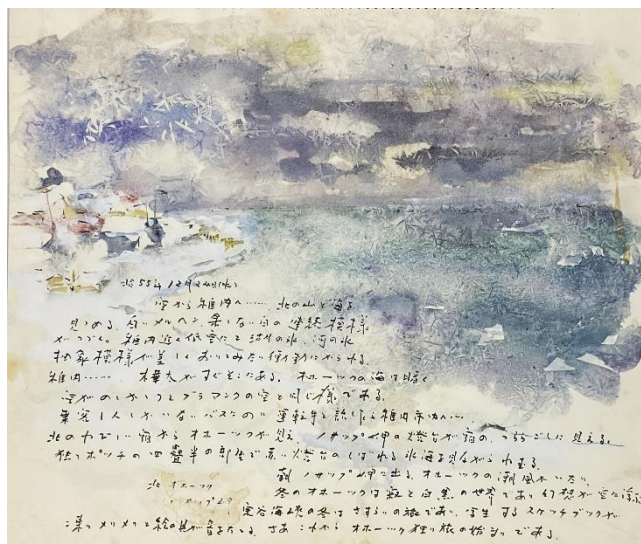 S55年12月24日(水)
空から稚内へ……、北の山と海を
見つめる。白いメルヘン、果しない白の連続模様
がつづく。稚内近く低空にて沼の氷、河の氷
抽象模様が美しくおりてみたい衝動にかられる。
稚内……樺太がすぐそこにある。オホーツクの海は暗く
空がのしかかってブラマンクの空と同じ様である。
乗客1人しかいないバスなので運転手と話したら稚内市内へ…。
北のわびしい宿からオホーツクが見え ノサップ岬の燈台が宿の窓ごしに見える。
独りポッチの四畳半の部屋で赤い燈台のしばれる北海を見ながらねむる。
朝ノサップ岬に出る。オホーツクの潮風が
冬のオホーツクは寂と白黒の世界であり幻想が
北オホーツク
ノサップ岬
宗谷海峡の冬はさすらいの旅であり、写生するスケッチブックが
凍りメリメリと絵の具が音をたてる。さあこれからオホーツク独り旅の始まりである。